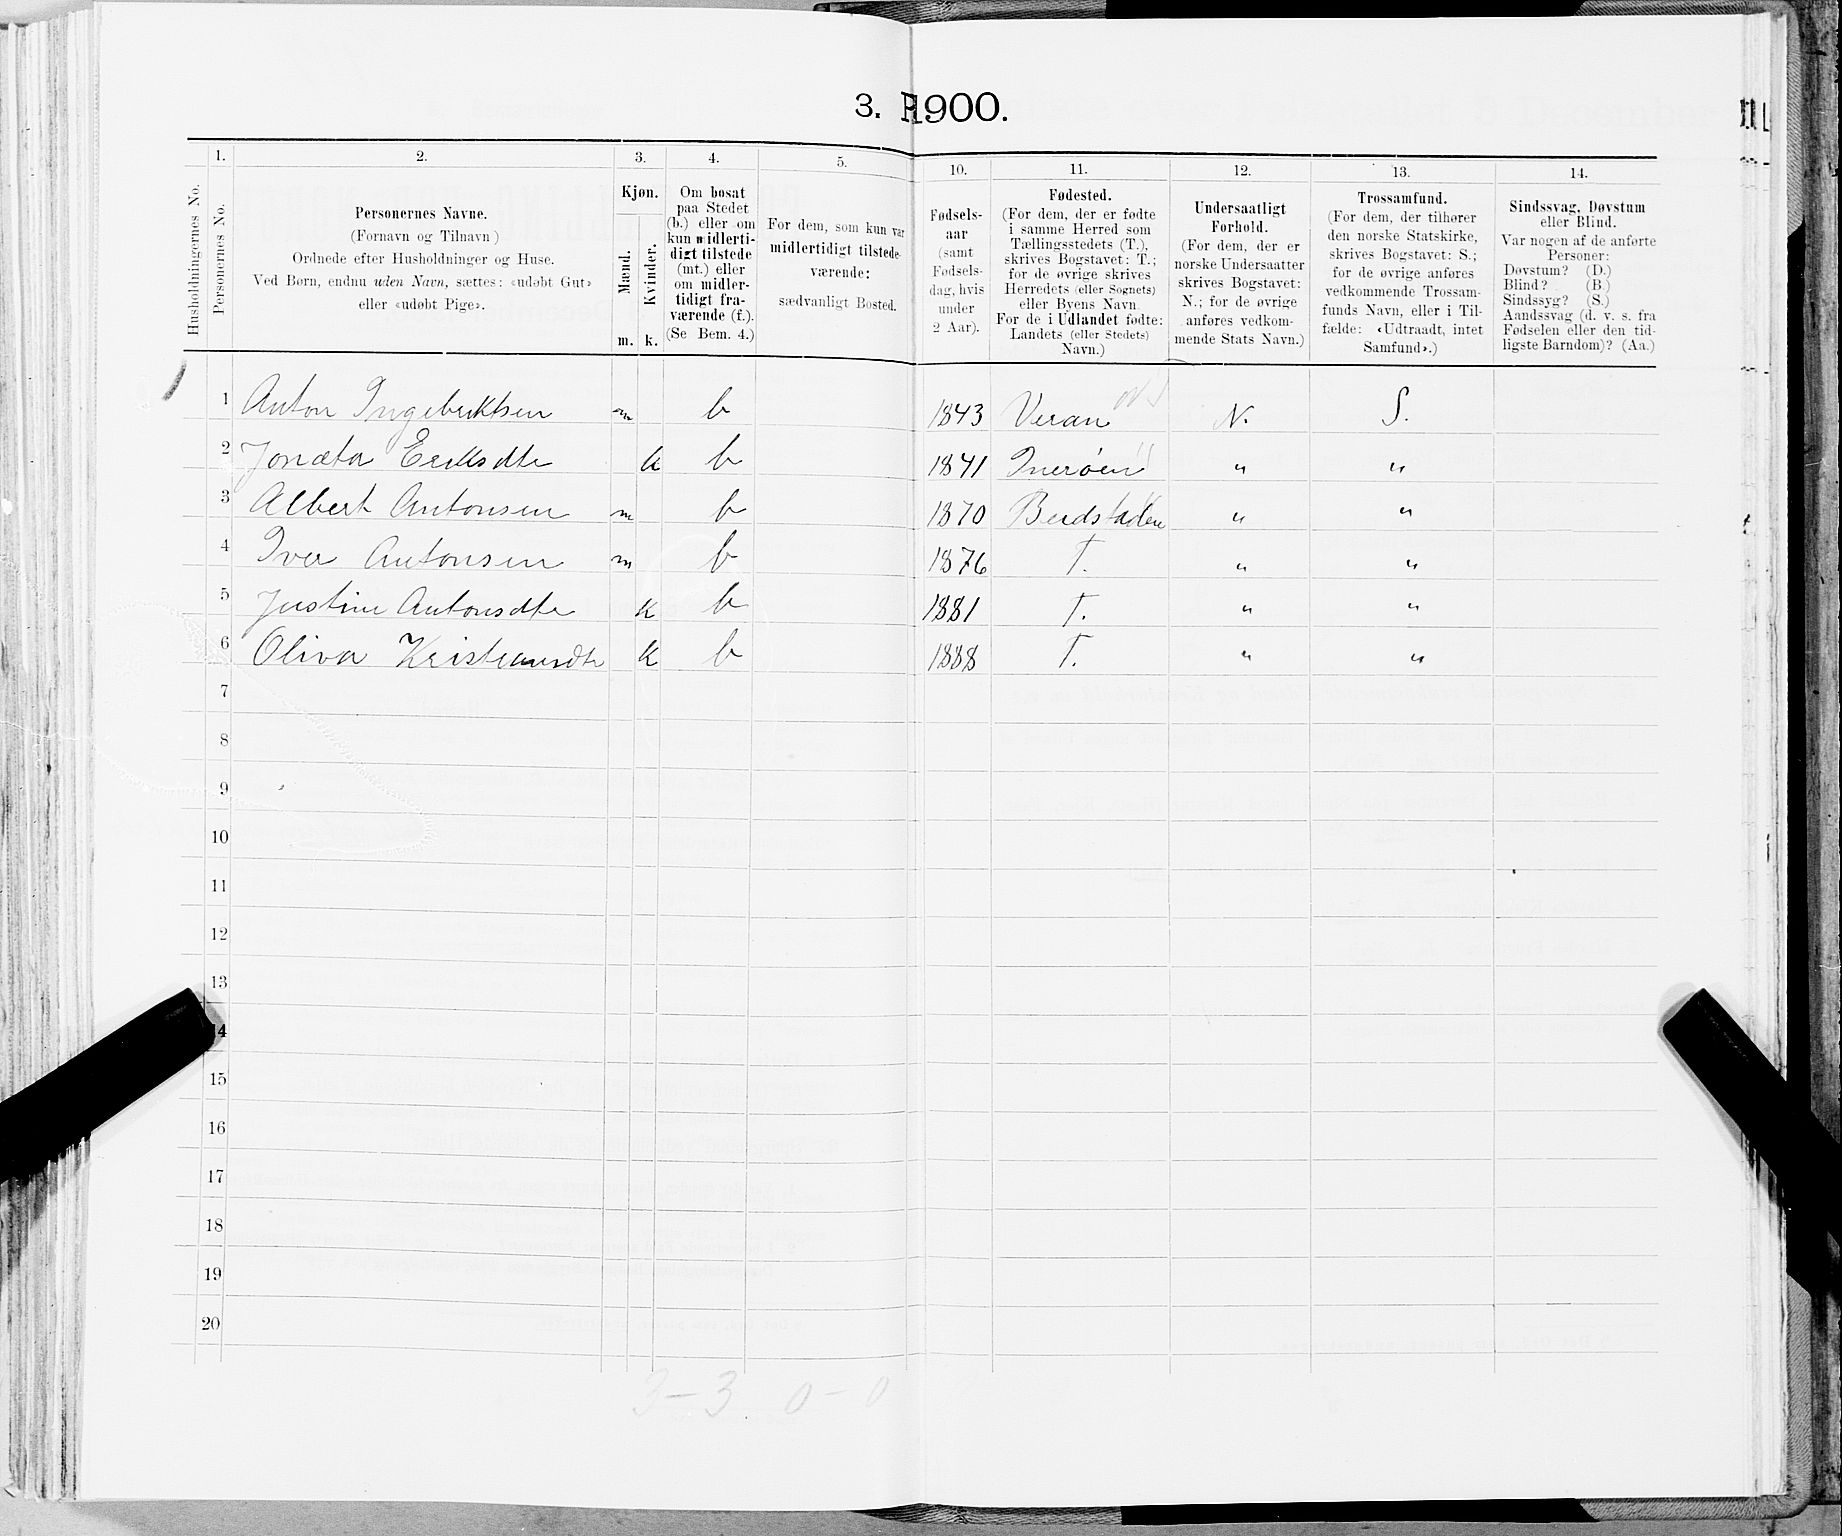 3. 1900.
1. 2. 3. 4. 5. 10. 11. 12. 13. 14.
Husholdningernes No.
Personernes No.
Personernes Navne.
(Fornavn og Tilnavn)
Ordnede efter Husholdninger og Huse.
Ved Børn, endnu uden Navn, sættes: «udøbt Gut»
eller «udøbt Pige».
Kjøn.
Mænd.
Kvinder.
m. k.
Om bosat
paa Stedet
(b.) eller om
kun midlerti-
digt tilstede
(mt.) eller
om midler-
tidigt fra-
værende (f.).
(Se Bem. 4.)
For dem, som kun var
midlertidigt tilstede-
værende:
sædvanligt Bosted.
Fødsels-
aar
(samt
Fødsels-
dag, hvis
under
2 Aar).
Fødested.
(For dem, der er fødte
i samme Herred som
Tællingsstedets (T.),
skrives Bogstavet: T.;
for de øvrige skrives
Herredets (eller Sognets)
eller Byens Navn.
For de i Udlandet fødte:
Landets (eller Stedets)
Navn.)
Undersaatligt
Forhold.
(For dem, der er
norske Undersaatter
skrives Bogstavet:
N.; for de øvrige
anføres vedkom-
mende Stats Navn.)
Trossamfund.
(For dem, der tilhører
den norske Statskirke,
skrives Bogstavet: S.;
for de øvrige anføres
vedkommende Trossam-
funds Navn, eller i Til-
fælde: «Udtraadt, intet
Samfund».)
Sindssvag, Døvstum
eller Blind.
Var nogen af de anførte
Personer:
Døvstum? (D.)
Blind? (B.)
Sindssyg? (S.)
Aandssvag (d. v. s. fra
Fødselen eller den tid-
ligste Barndom)? (Aa.)
1 Anton Ingebrektsen m b 1843 Veran N. S.
2 Jonæta Eriksdtr k b 1841 Inerøen " "
3 Albert Antonsen m b 1870 Beidstaden " "
4 Iver Antonsen m b 1876 T. " "
5 Justine Antonsdtr k b 1881 T. " "
6 Oliva Kristiansdtr k b 1888 T. " "
7
8
9
10
11
12
13
14
15
16
17
18
19
20
3 – 3 0 – 0